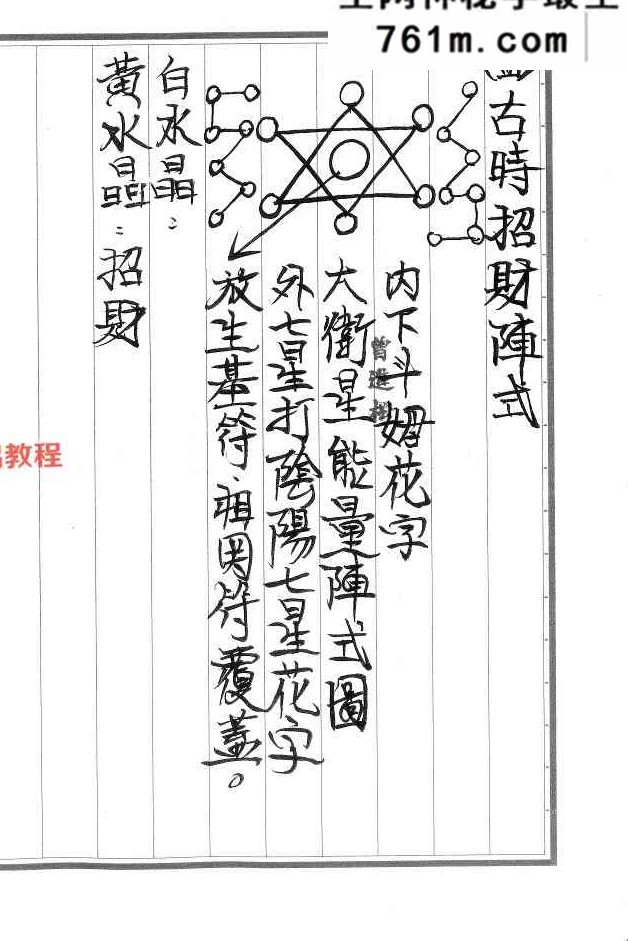 761m.com
古時招財陣式
內下斗姆花字
大衛星能量陣式圖
外七星打陰陽七星花字
放生基符、祖岡符覆蓋。
白水晶：
黃水晶：招財
教程